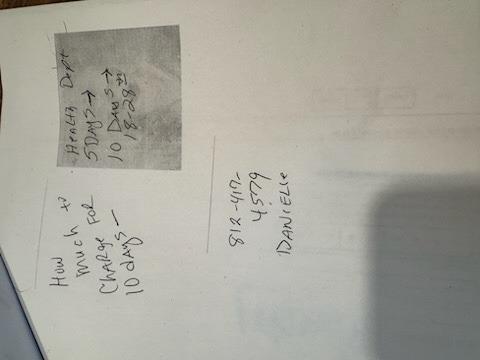 Health Dept
5 Days →
10 Days →
18-28
How much to
charge for
10 days —
812-417-
4579
DANIELLE